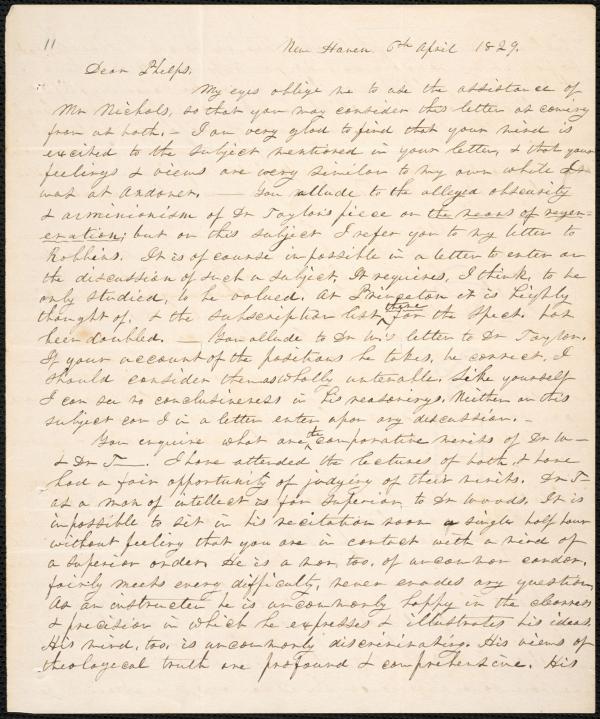 11
New Haven 6th April 1829.
Dear Phelps.
My eyes oblige me to use the assistance of
Mr Nichols, so that you may consider this letter as coming
from us both. – I am very glad to find that your mind is
excited to the subject mentioned in your letter, & that your
feelings & views are very similar to my own while I
was at Andover. — You allude to the alleged obscurity
& arminianism of Dr Taylor's piece on the means of regen-
eration; but on this subject I refer you to my letter to
Robbins. It is of course impossible in a letter to enter on
the discussion of such a subject. It requires, I think, to be
only studied, to be valued. At Princeton it is highly
thought of, & the subscription list there for the Spect. has
been doubled. — You allude to Dr W's letter to Dr Taylor.
If your account of the positions he takes, be correct, I
should consider them as wholly untenable. Like yourself
I can see no conclusiveness in his reasonings. Neither on this
subject can I in a letter enter upon any discussion. –
You enquire what are the comparative merits of Dr W—
& Dr T—. I have attended the lectures of both, & have
had a fair opportunity of judging of their merits. Dr T–
as a man of intellect is far superior to Dr Woods. It is
impossible to sit in his recitation room a single half hour
without feeling that you are in contact with a mind of
a superior order. He is a man, too, of uncommon candor,
fairly meets every difficulty, never evades any question.
As an instructer he is uncommonly happy in the clearness
& precision in which he expresses & illustrates his ideas.
His mind, too, is uncommonly discriminating. His views of
theological truth are profound & comprehensive. His